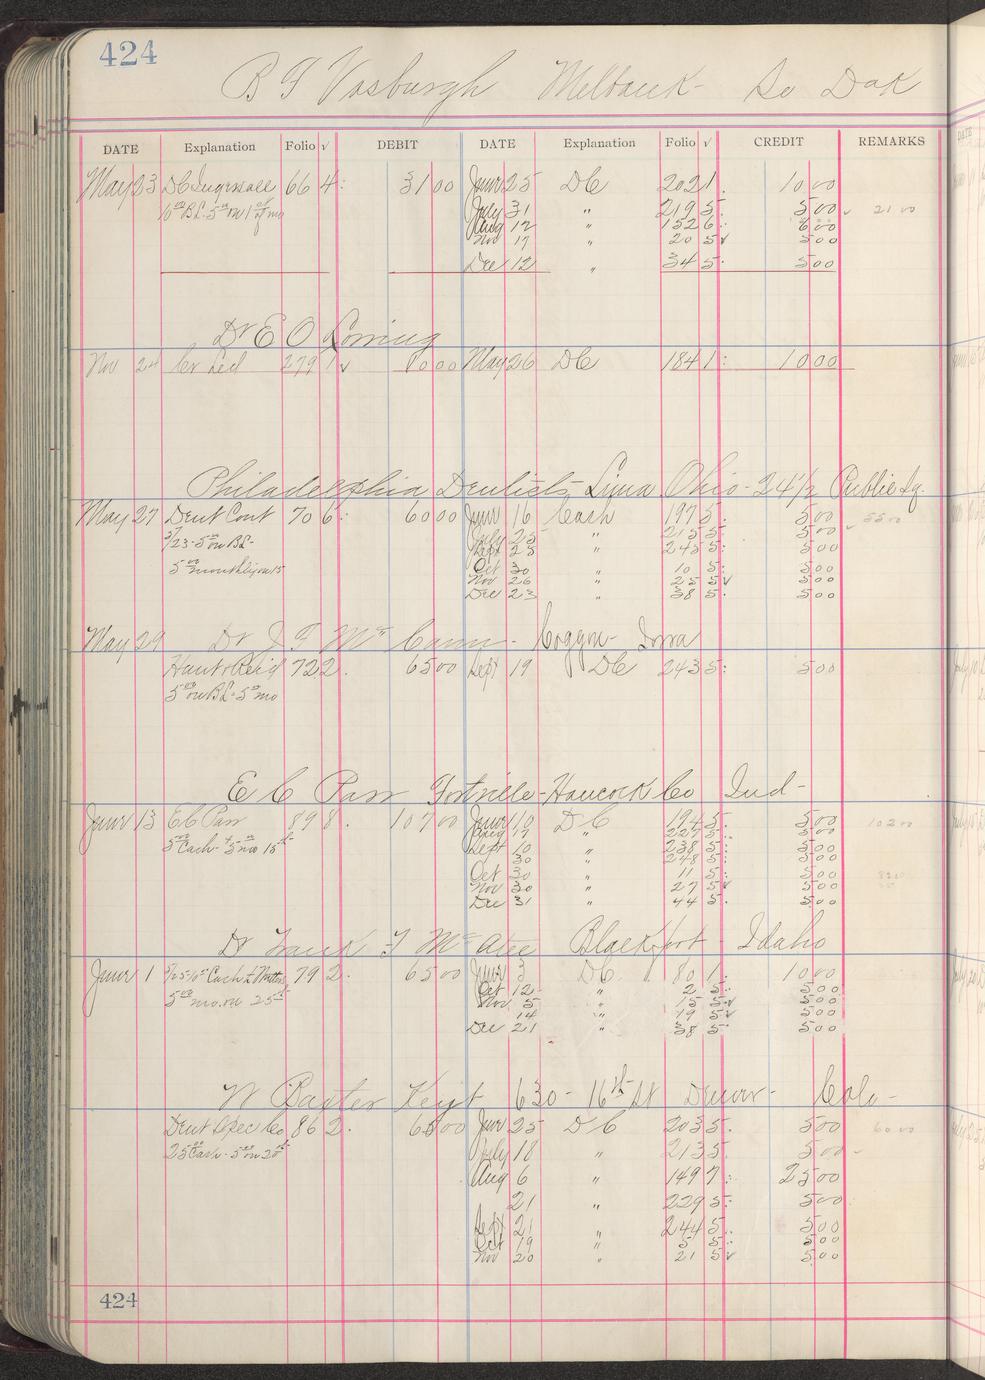 424
B F Vosburgh Milbank - So Dak
DATE Explanation Folio √ DEBIT DATE Explanation Folio √ CREDIT REMARKS
May 23 DC Ingersoll 66 4: 31 00 June 25 DC 202 1. 10 00
10 00 BL. 5 00 on 1 of mo July 31 " 219 5: 5 00 21 00
Aug 12 " 152 6: 6 00
Nov 17 " 20 5 √ 5 00
Dec 12 " 34 5. 5 00
Dr E O Loring
Nov 24 Cr Led 279 1 √ 10 00 May 26 DC 184 1: 10 00
Philadelphia Dentists, Lima, Ohio - 24 1/2 Public Sq.
May 27 Dent Cont 70 6: 60 00 June 16 Cash 197 5. 5 00
5/23 - 5 00 on BL - July 25 " 215 5: 5 00 55 00
Sept 25 " 245 5: 5 00
5 00 monthly on 15 Oct 30 " 10 5: 5 00
Nov 26 " 25 5 √ 5 00
Dec 23 " 38 5. 5 00
May 29 Dr J F Mc Cann - Coggon - Iowa
72 2. 65 00 Sept 19 DC 243 5: 5 00
5 00 on BL - 5 00 mo
E C Parr Fortville - Hancock Co Ind -
June 13 E C Parr 89 8. 107 00 June 10 DC 194 5. 5 00 102 00
5 00 Cash - 5 00 mo 15th Aug 17 " 227 5: 5 00
Sept 10 " 238 5: 5 00
30 " 248 5: 5 00
Oct 30 " 11 5: 5 00
Nov 30 " 27 5 √ 5 00
Dec 31 " 44 5. 5 00
Dr Frank F McAtee Blackfoot - Idaho
June 1 79 2. 65 00 June 3 DC 80 1. 10 00
5 00 mo. on 25th Oct 12 " 2 5: 5 00
Nov 5 " 15 5 √ 5 00
14 " 19 5 √ 5 00
Dec 21 " 38 5. 5 00
W Baxter Keyt 630 - 16th St Denver - Colo -
Dent Spec Co 86 2. 65 00 Jun 25 DC 203 5. 5 00 60 00
25 00 Cash - 5 00 on 20th July 18 " 213 5. 5 00
Aug 6 " 149 7: 25 00
21 " 229 5: 5 00
Sept 21 " 244 5: 5 00
Oct 19 " 5 5: 5 00
Nov 20 " 21 5 √ 5 00
424